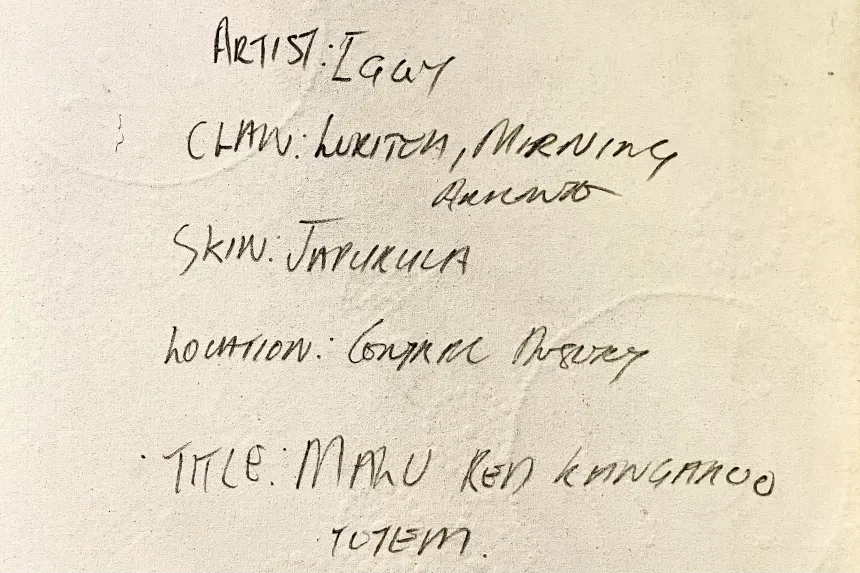 ARTIST: IGGY
CLAN: MIRNING
SKIN: JAPURULA
LOCATION: CENTRAL DESERT
TITLE: MALU RED KANGAROO
TOTEM.